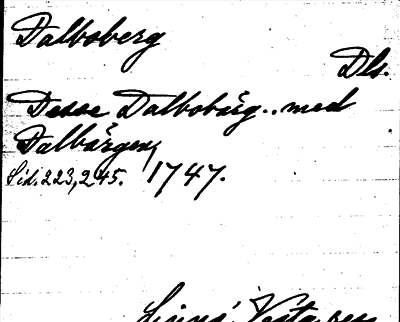 Dalboberg
Dls.
Desse Dalbobärg.. med
Dalbärgen,
Sid. 223, 245. 1747.
Linné, Västg. res